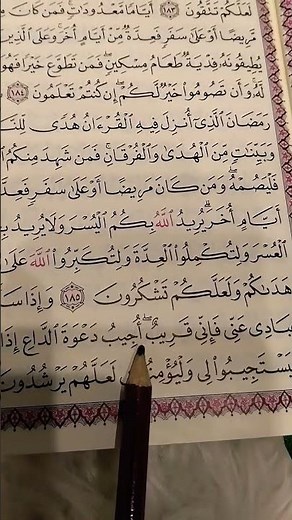 لَعَلَّكُمْ تَتَّقُونَ ١٨٣ أَيَّامًا مَّعْدُودَاتٍ فَمَن كَانَ
مَّرِيضًا أَوْ عَلَىٰ سَفَرٍ فَعِدَّةٌ مِّنْ أَيَّامٍ أُخَرَ وَعَلَى الَّذِينَ
يُطِيقُونَهُ فِدْيَةٌ طَعَامُ مِسْكِينٍ فَمَن تَطَوَّعَ خَيْرًا فَهُوَ
لَّهُ وَأَن تَصُومُوا خَيْرٌ لَّكُمْ إِن كُنتُمْ تَعْلَمُونَ ١٨٤
رَمَضَانَ الَّذِي أُنزِلَ فِيهِ الْقُرْءَانُ هُدًى لِّلنَّا
وَبَيِّنَاتٍ مِّنَ الْهُدَىٰ وَالْفُرْقَانِ فَمَن شَهِدَ مِنكُمُ
فَلْيَصُمْهُ وَمَن كَانَ مَرِيضًا أَوْ عَلَىٰ سَفَرٍ فَعِدَّ
أَيَّامٍ أُخَرَ يُرِيدُ اللَّهُ بِكُمُ الْيُسْرَ وَلَا يُرِيدُ بِ
الْعُسْرَ وَلِتُكْمِلُوا الْعِدَّةَ وَلِتُكَبِّرُوا اللَّهَ عَلَىٰ
هَدَاكُمْ وَلَعَلَّكُمْ تَشْكُرُونَ ١٨٥ وَإِذَا سَأَ
عِبَادِي عَنِّي فَإِنِّي قَرِيبٌ أُجِيبُ دَعْوَةَ الدَّاعِ إِذَا
يَسْتَجِيبُوا لِي وَلْيُؤْمِنُوا لَعَلَّهُمْ يَرْشُدُونَ